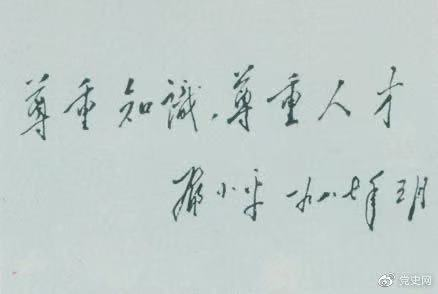 尊重知識，尊重人才
鄧小平 一九八七年三月
党史网